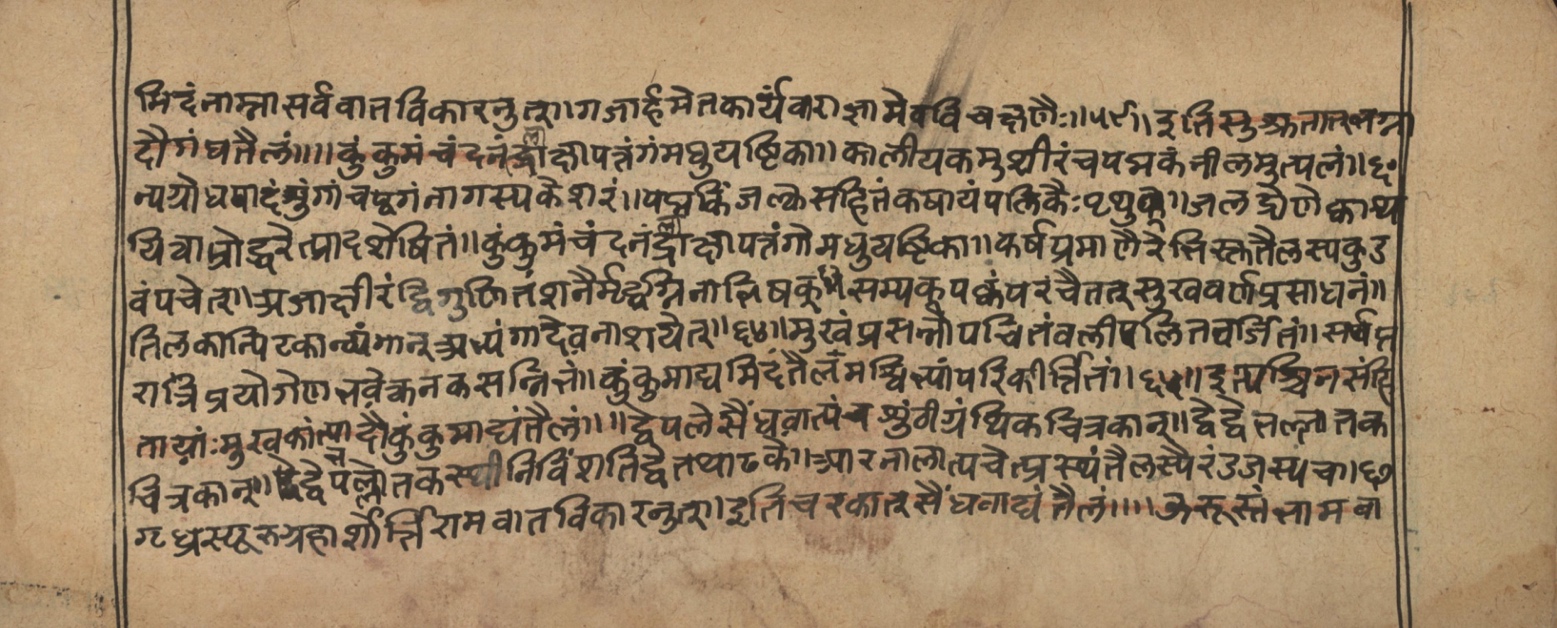 मिदं नाम्ना सर्ववातविकारनुत्॥ गजार्हमेतकार्यंवाराज्ञामेवविचक्षणैः॥५९॥ इति सुश्रुतात्
दौगंधतैलं॥॥ कुंकुमं चंदनं द्राक्षापत्रंगंमधुयष्टिका॥ कालीयकमुशीरंचपद्मकं नीलमुत्पलं॥६०
न्यग्रोधपादं शुंगांचप्लगं नागस्यकेशरं॥ पद्मकिंजल्कसहितं कषायं पलिकैः पृथक्॥ जलद्रोणेक्वाथ
यित्वाप्रोद्धरेत्पादशेषितं॥ कुंकुमं चंदनं द्राक्षापत्रंगो मधुयष्टिका॥ कर्षप्रमाणैरेभिस्ततैलस्यकुड
वंपचेत्॥ अजाक्षीरंद्विगुणितंशनैर्मृद्वग्निनाभिषकू सम्यकूपक्वंपरंचैतत्सुखवर्णप्रसाधनं॥
तिलकान्पिटकान्व्यंगान् अभ्यंगादेवनाशयेत्॥६४॥ मुखंप्रसन्नोपचितंवलीपलितवर्जितं॥ सप्त
रात्रिप्रयोगेण भवेत्कनकसन्निभं॥ कुंकुमाद्यमिदंतैलंमश्विभ्यांपरिकीर्त्तितं॥६५॥ इत्यश्विनसंहि
तायां मुखकांत्यादौकुंकुमाद्यंतैलं॥॥ द्वेपलेसैंधवात्पंचशुंठीग्रंथिकचित्रकान्॥ द्वेद्वेभल्लातक
चित्रकान्॥ द्वेद्वेपभल्लातकास्थीनिविंशतिद्वैतथाढकै॥ आरनालात्पचेत्प्रस्थंतैलस्यैरंडजस्यच॥६७
गृध्रस्यूरुग्रहार्शोर्त्तिरामवातविकारनुत्॥ इतिचरकात्सैंधवाद्यंतैलं॥॥